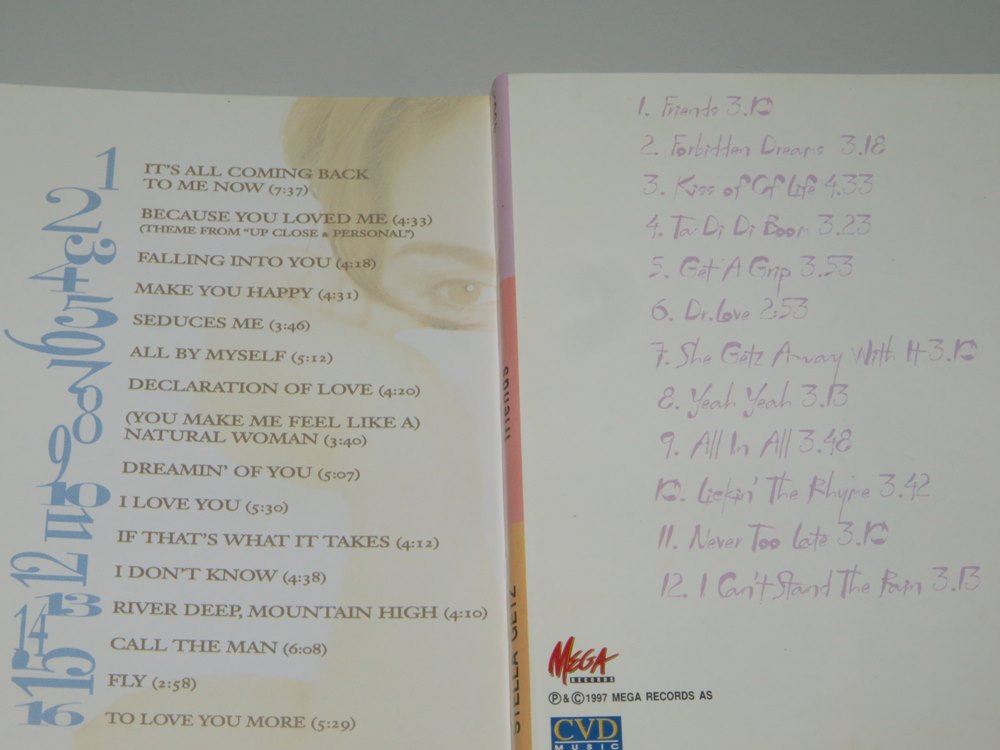 1 IT'S ALL COMING BACK
TO ME NOW (7:37)
2 BECAUSE YOU LOVED ME (4:33)
(THEME FROM "UP CLOSE & PERSONAL")
3 FALLING INTO YOU (4:18)
4 MAKE YOU HAPPY (4:31)
5 SEDUCES ME (3:46)
6 ALL BY MYSELF (5:12)
7 DECLARATION OF LOVE (4:20)
8 (YOU MAKE ME FEEL LIKE A)
NATURAL WOMAN (3:40)
9 DREAMIN' OF YOU (5:07)
10 I LOVE YOU (5:30)
11 IF THAT'S WHAT IT TAKES (4:12)
12 I DON'T KNOW (4:38)
13 RIVER DEEP, MOUNTAIN HIGH (4:10)
14 CALL THE MAN (6:08)
15 FLY (2:58)
16 TO LOVE YOU MORE (5:29)
friends
STELLA GETZ
1. Friends 3.10
2. Forbidden Dreams 3.18
3. Kiss of Of Life 4.33
4. Ta Di Di Boom 3.23
5. Get A Grip 3.53
6. Dr. Love 2:53
7. She Getz Away With It 3.10
8. Yeah Yeah 3.13
9. All In All 3.48
10. Liekin' The Rhyme 3.42
11. Never Too Late 3.10
12. I Can't Stand The Pain 3.13
MEGA
RECORDS
Ⓟ&Ⓒ1997 MEGA RECORDS AS
CVD
MUSIC